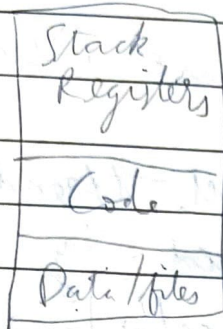 Stack
Registers
Code
Data/files